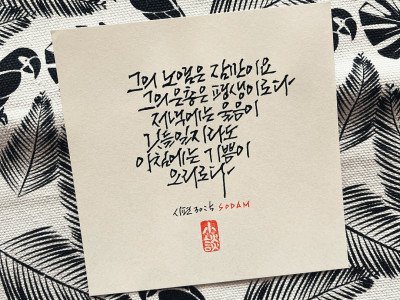 그의 노염은 잠깐이요
그의 은총은 평생이로다
저녁에는 울음이
깃들일지라도
아침에는 기쁨이
오리로다
시편 30:5 SODAM